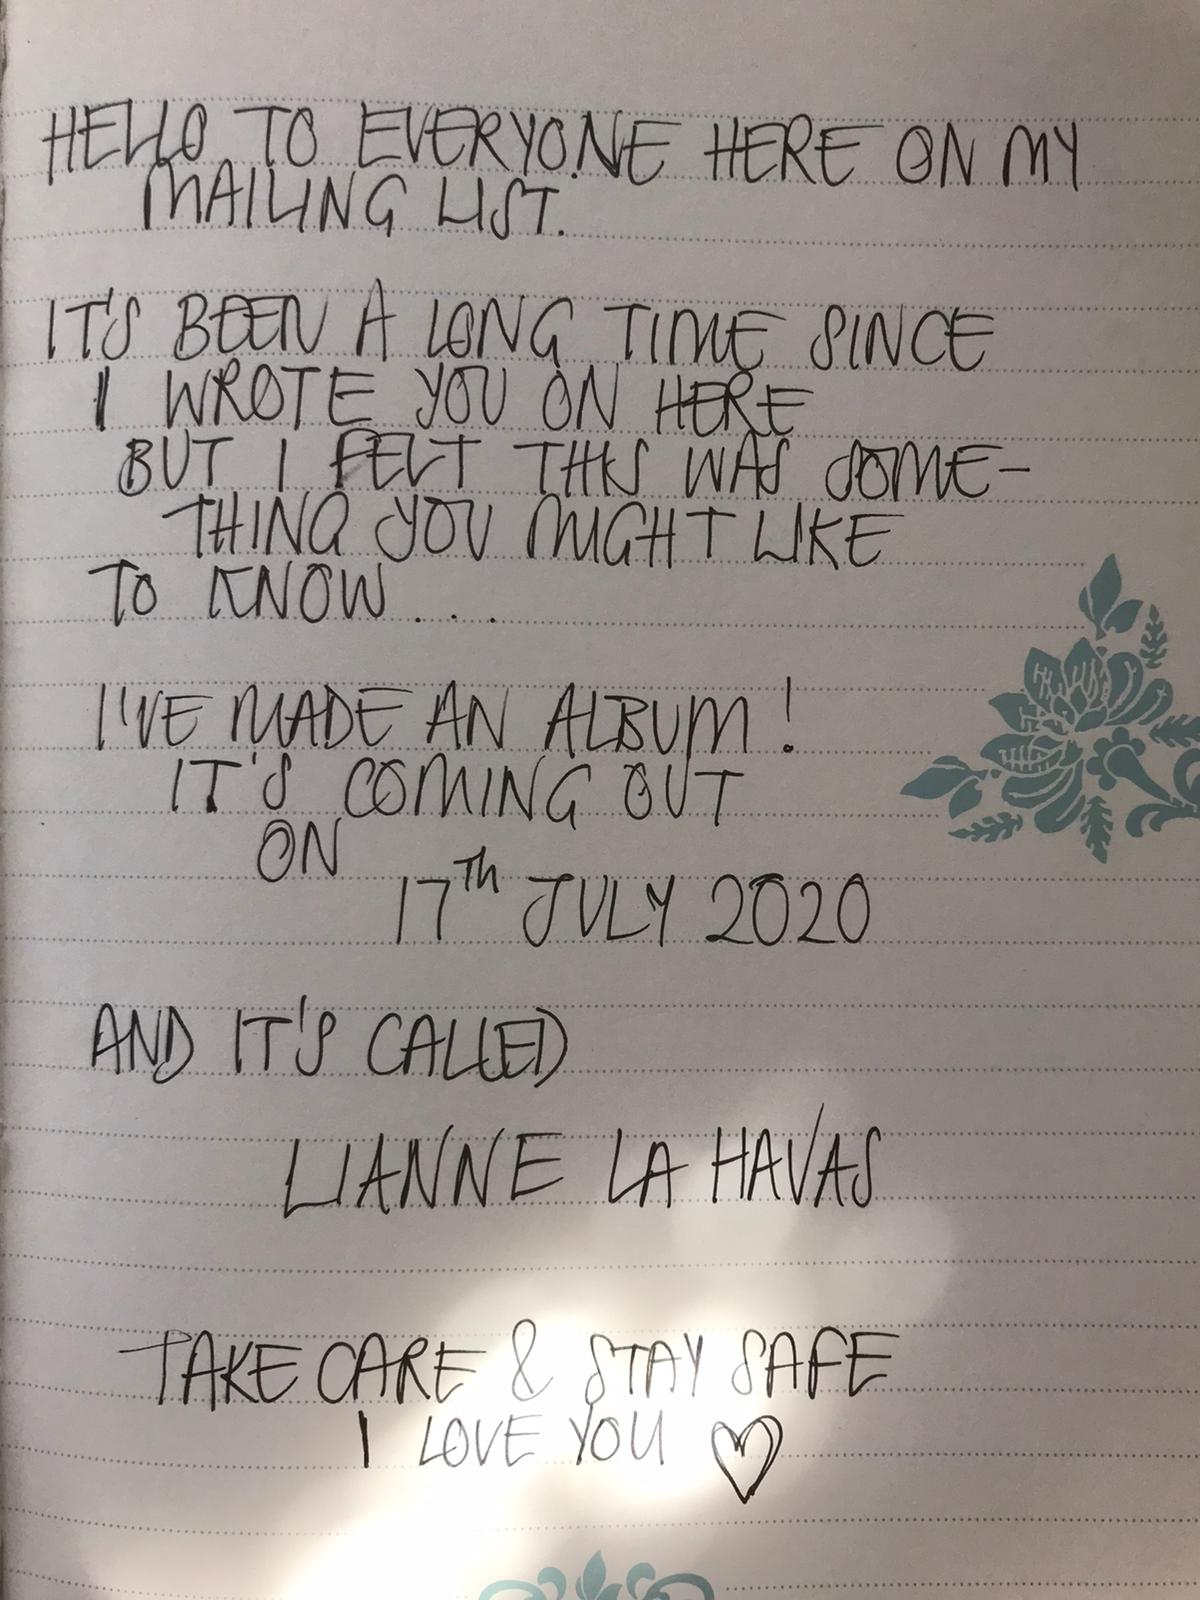 HELLO TO EVERYONE HERE ON MY
MAILING LIST.
IT'S BEEN A LONG TIME SINCE
I WROTE YOU ON HERE
BUT I FELT THIS WAS SOME-
THING YOU MIGHT LIKE
TO KNOW...
I'VE MADE AN ALBUM!
IT'S COMING OUT
ON
17Th JULY 2020
AND IT'S CALLED
LIANNE LA HAVAS
TAKE CARE & STAY SAFE
I LOVE YOU ♡